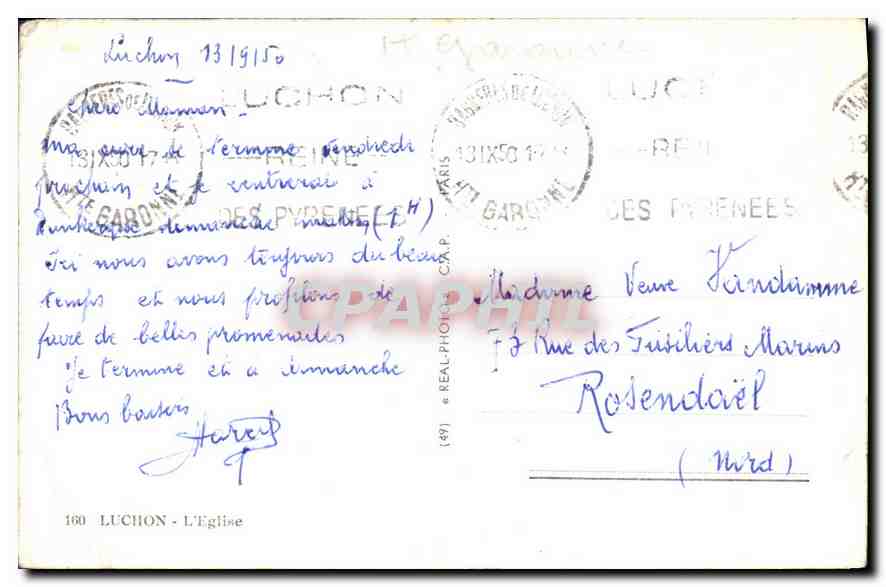 Hte Garonne
Luchon 13/9/50
BAGNERES DE LUCHON
13 IX 50 17 H
Hte GARONNE
LUCHON
REINE
DES PYRENEES
BAGNERES DE LUCHON
13 IX 50 17 H
Hte GARONNE
LUC
REIN
DES PYRENEES
Chère Maman
Ma cure se termine vendredi
prochain et je rentrerai à
Dunkerque dimanche matin (7H)
Ici nous avons toujours du beau
temps et nous profitons de
faire de belles promenades
Je termine et à dimanche
Bons baisers
Madame Veuve Vandamme
77 Rue des Fusiliers Marins
Rosendaël
(Nord)
CPAPHIL
(49) « REAL-PHOTO » C.A.P. PARIS
160 LUCHON - L'Eglise